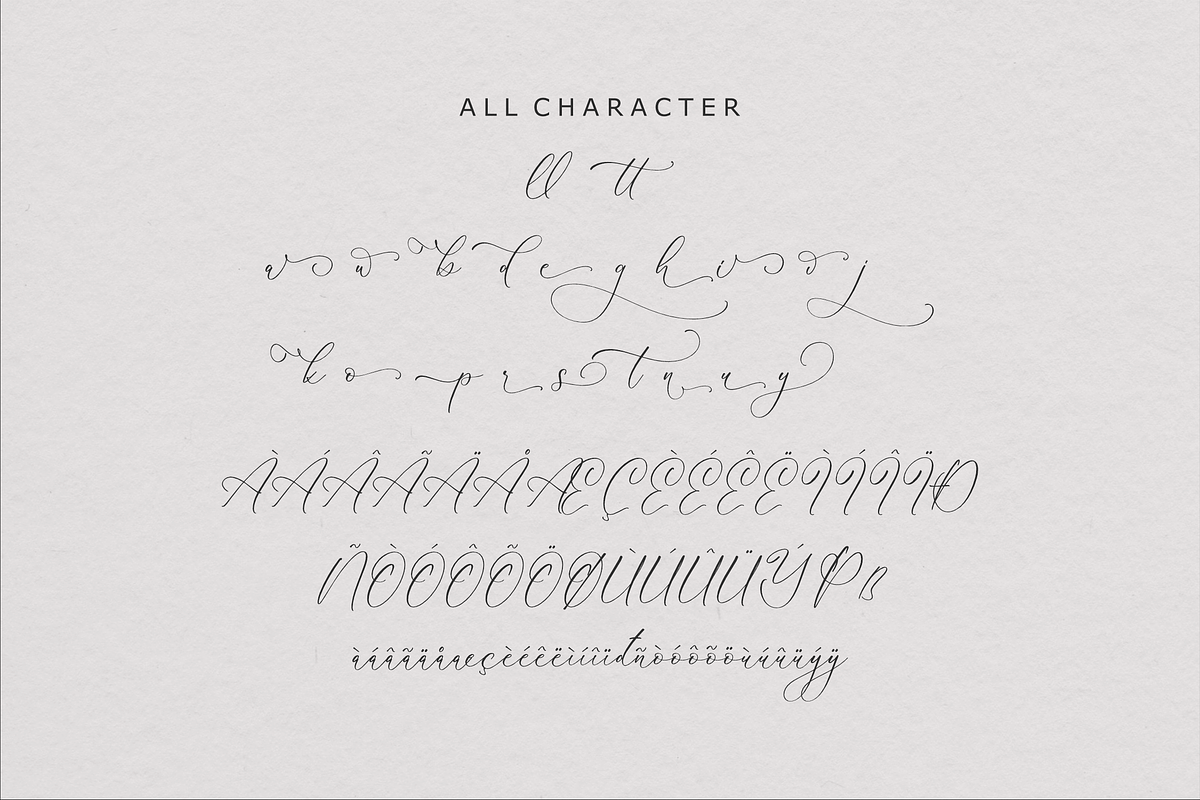 ALL CHARACTER
ll tt
a a b d e g h i i j
k o p r s t u u y
ÀÁÂÃÄÅÆÇÈÉÊËÌÍÎÏÐ
ÑÒÓÔÕÖØÙÚÛÜÝÞß
àáâãäåæçèéêëìíîïđñòóôõöùúûüýÿ